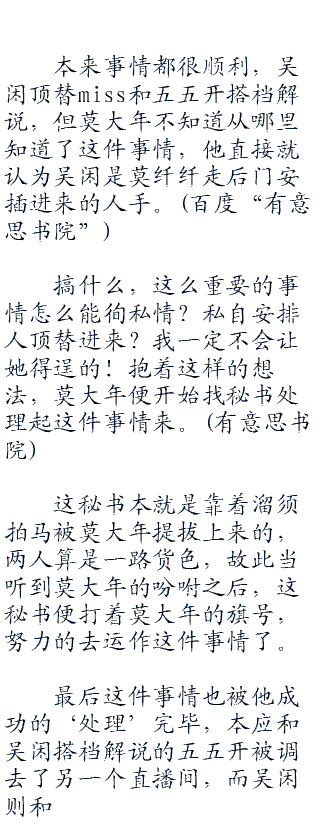 本来事情都很顺利，吴
闲顶替miss和五五开搭档解
说，但莫大年不知道从哪里
知道了这件事情，他直接就
认为吴闲是莫纤纤走后门安
插进来的人手。(百度“有意
思书院”)
搞什么，这么重要的事
情怎么能徇私情？私自安排
人顶替进来？我一定不会让
她得逞的！抱着这样的想
法，莫大年便开始找秘书处
理起这件事情来。(有意思书
院)
这秘书本就是靠着溜须
拍马被莫大年提拔上来的，
两人算是一路货色，故此当
听到莫大年的吩咐之后，这
秘书便打着莫大年的旗号，
努力的去运作这件事情了。
最后这件事情也被他成
功的‘处理’完毕，本应和
吴闲搭档解说的五五开被调
去了另一个直播间，而吴闲
则和